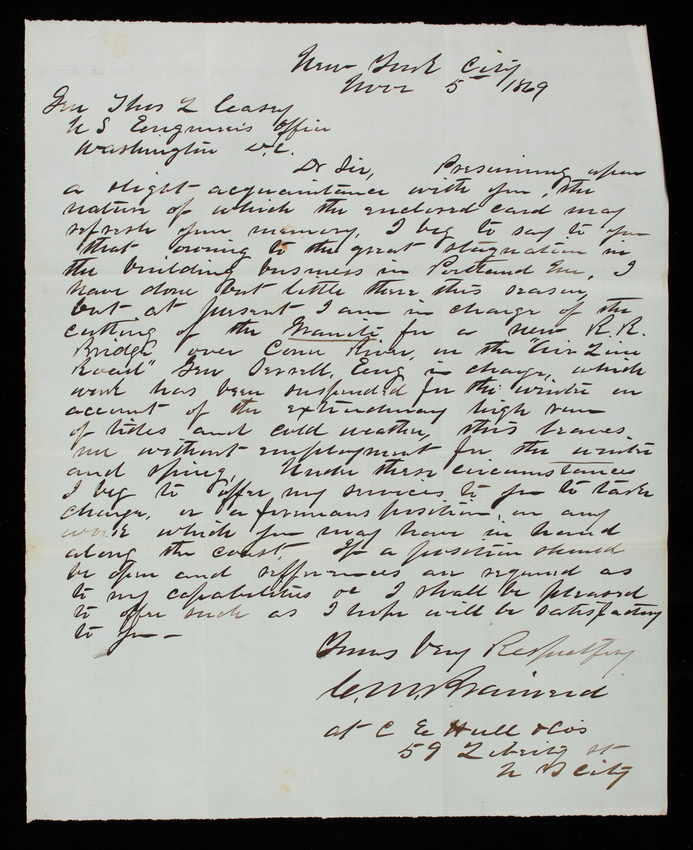 New York City
Nov 5 1869
Gen Thos L Casey
U S Engineers Office
Washington D.C.
Dr Sir, Presuming upon
a slight acquaintance with you, the
nature of which the enclosed card may
refresh your memory, I beg to say to you
that owning to the great stagnation in
the building business in Portland Me, I
have done but little there this season,
but at present I am in charge of the
cutting of the Granite for a new R.R.
Bridge over Conn River, on the "Air Line
Road" Gen Serrell, Eng in charge, which
work has been suspended for the winter on
account of the extraordinary high run
of tides and cold weather, this leaves
me without employment for the winter
and spring, Under these circumstances
I beg to offer my services to you to take
charge, or a foremans position, on any
work which you may have in hand
along the coast If a position should
be open and refferences are required as
to my capabilities &c I shall be pleased
to offer such as I hope will be satisfactory
to you -
Yours Very Respectfuly
C. M. Brainerd
at C E Hull & Cos
59 Liberty st
N Y City